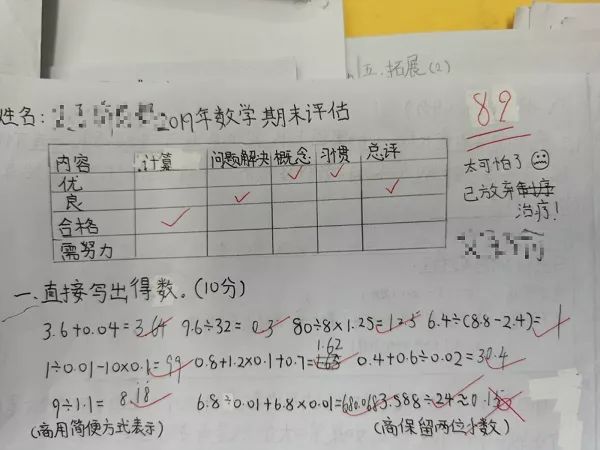 五.拓展(2)
姓名: 2019年数学期末评估
89
内容 计算 问题解决 概念 习惯 总评
优
良
合格
需努力
太可怕了
已放弃
治疗!
一.直接写出得数。(10分)
3.6+0.04=3.64 9.6÷32=0.3 80÷8×1.25=12.5 6.4÷(8.8-2.4)=1
1.62
1÷0.01-10×0.1=99 0.8+1.2×0.1+0.7= 0.4+0.6÷0.02=30.4
9÷1.1=8.1̇8̇ 6.8÷0.01+6.8×0.01=680.068 3.588÷24≈0.15
(商用简便方式表示) (商保留两位小数)